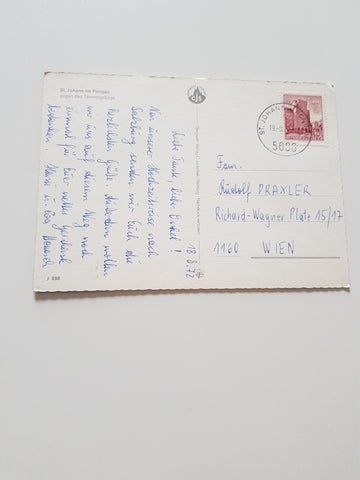 St. Johann im Pongau
gegen das Tennengebirge
18.8.72
Liebe Tante, lieber Onkel!
Von unserer Hochzeitsreise nach
Salzburg senden wir Euch die
herzlichsten Grüße. Außerdem wollen
wir uns auf diesem Weg noch
einmal für Euer nettes Geschenk
bedanken.
ST. JOHANN
5600
Fam.
Rudolf DRAXLER
Richard-Wagner Platz 15/17
1160 WIEN